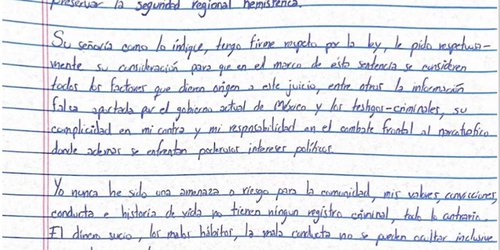 preservar la seguridad regional hemisférica.
Su señoría como lo indique, tengo firme respeto por la ley, le pido respetuosa-
mente su consideración para que en el marco de esta sentencia se consideren
todos los factores que dieron origen a este juicio, entre otros la información
falsa aportada por el gobierno actual de México y los testigos-criminales, su
complicidad en mi contra y mi responsabilidad en el combate frontal al narcotráfico
donde además se enfrentan poderosos intereses políticos.
Yo nunca he sido una amenaza o riesgo para la comunidad, mis valores, convicciones,
conducta e historia de vida no tienen ningun registro criminal, todo lo contrario.
El dinero sucio, los malos hábitos, la mala conducta no se pueden ocultar inclusive